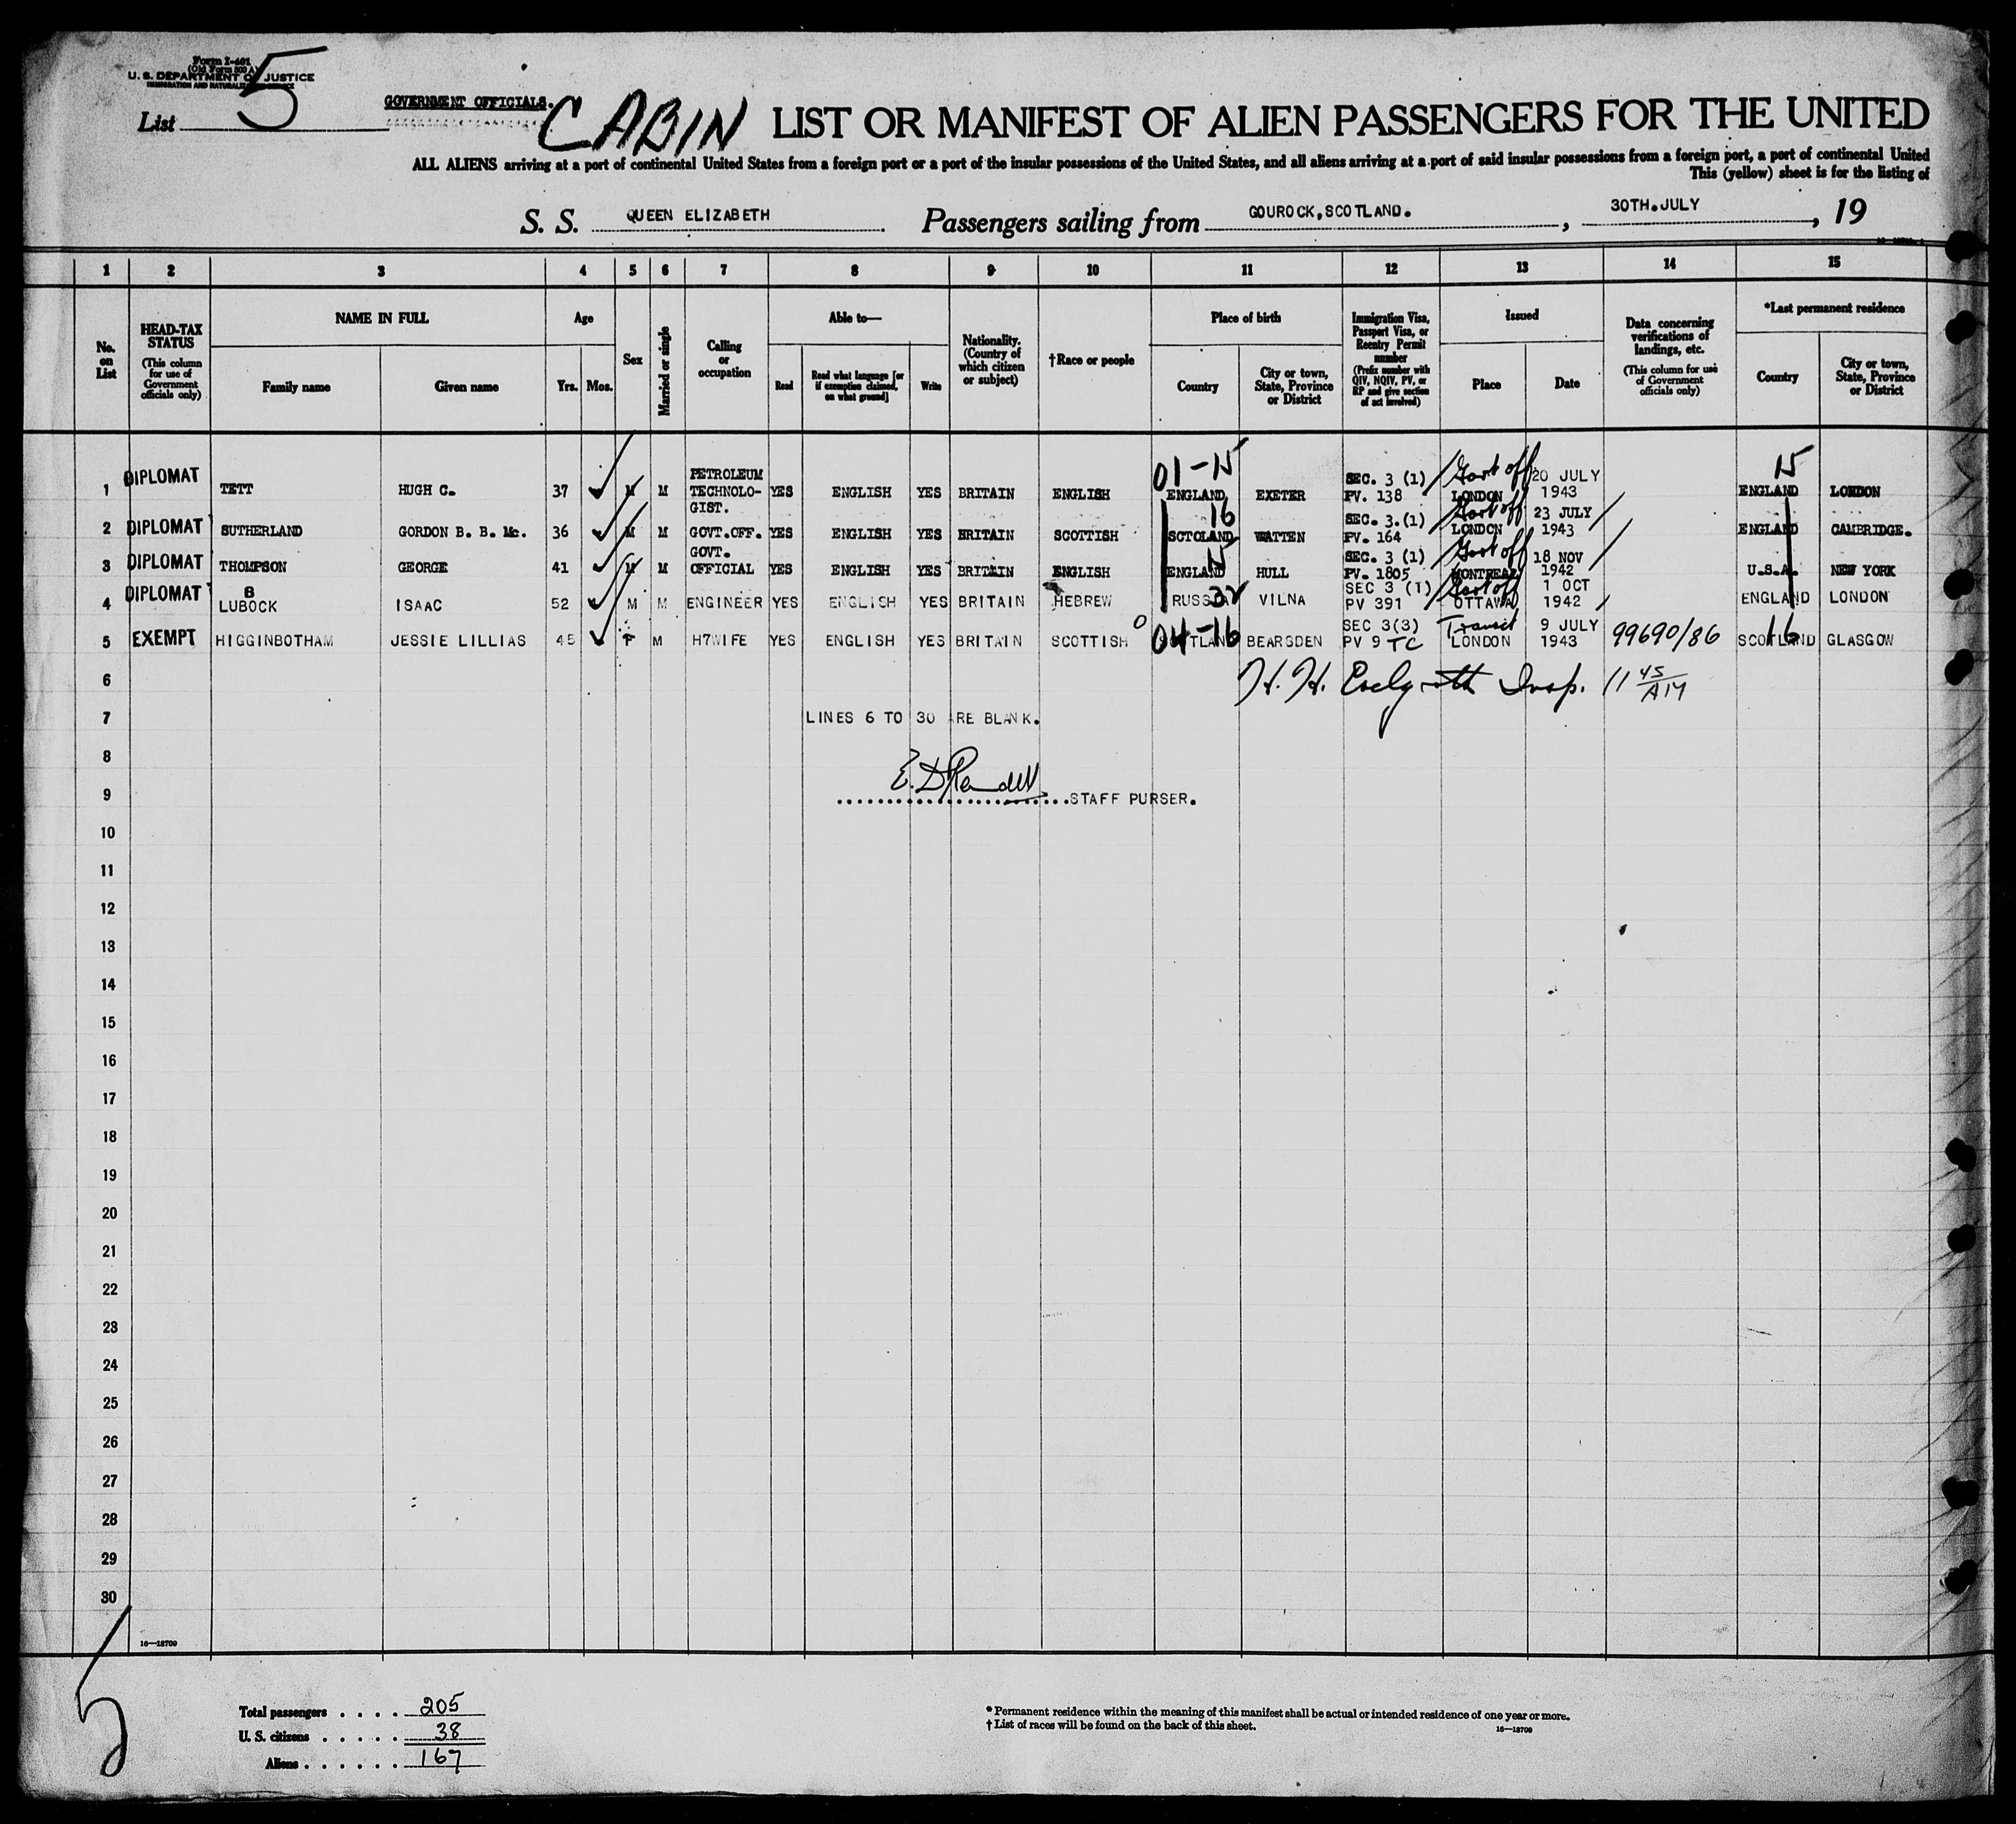 Form I-401
(Old Form 500 A)
U. S. DEPARTMENT OF JUSTICE
IMMIGRATION AND NATURALIZATION SERVICE
List 5
GOVERNMENT OFFICIALS.
CABIN LIST OR MANIFEST OF ALIEN PASSENGERS FOR THE UNITED
ALL ALIENS arriving at a port of continental United States from a foreign port or a port of the insular possessions of the United States, and all aliens arriving at a port of said insular possessions from a foreign port, a port of continental United
This (yellow) sheet is for the listing of
S. S. QUEEN ELIZABETH Passengers sailing from GOUROCK, SCOTLAND. , 30TH.JULY , 19
1 2 3 4 5 6 7 8 9 10 11 12 13 14 15
No. on List
HEAD-TAX STATUS (This column for use of Government officials only)
NAME IN FULL Family name Given name
Age Yrs. Mos.
Sex
Married or single
Calling or occupation
Able to— Read Read what language [or if exemption claimed, on what ground] Write
Nationality. (Country of which citizen or subject)
†Race or people
Place of birth Country City or town, State, Province or District
Immigration Visa, Passport Visa, or Reentry Permit number (Prefix number with QIV, NQIV, PV, or RP and give section of act involved)
Issued Place Date
Data concerning verifications of landings, etc. (This column for use of Government officials only)
*Last permanent residence Country City or town, State, Province or District
1 DIPLOMAT TETT HUGH C. 37 ✓ M M PETROLEUM TECHNOLO-GIST. YES ENGLISH YES BRITAIN ENGLISH 01-15 ENGLAND EXETER SEC. 3 (1) PV. 138 Govt off LONDON 20 JULY 1943 15 ENGLAND LONDON
2 DIPLOMAT SUTHERLAND GORDON B. B. Mc. 36 ✓ M M GOVT.OFF. YES ENGLISH YES BRITAIN SCOTTISH 16 SCTOLAND WATTEN SEC. 3.(1) PV. 164 Govt off LONDON 23 JULY 1943 ENGLAND CAMBRIDGE.
3 DIPLOMAT THOMPSON GEORGE 41 ✓ M M GOVT. OFFICIAL YES ENGLISH YES BRITAIN ENGLISH 15 ENGLAND HULL SEC. 3 (1) PV. 1805 Govt off MONTREAL 18 NOV 1942 U.S.A. NEW YORK
4 DIPLOMAT B LUBOCK ISAAC 52 ✓ M M ENGINEER YES ENGLISH YES BRITAIN HEBREW 32 RUSSIA VILNA SEC 3 (1) PV 391 Govt off OTTAWA 1 OCT 1942 ENGLAND LONDON
5 EXEMPT HIGGINBOTHAM JESSIE LILLIAS 45 ✓ F M H7WIFE YES ENGLISH YES BRITAIN SCOTTISH 04-16 SCOTLAND BEARSDEN SEC 3(3) PV 9 TC Transit LONDON 9 JULY 1943 99690/86 16 SCOTLAND GLASGOW
6 H. H. Insp. 11 45 AM
7 LINES 6 TO 30 ARE BLANK.
8
9 E. D. Rendell STAFF PURSER.
10
11
12
13
14
15
16
17
18
19
20
21
22
23
24
25
26
27
28
29
30
16—18709
5
Total passengers . . . . 205
U. S. citizens . . . . . 38
Aliens . . . . . . 167
* Permanent residence within the meaning of this manifest shall be actual or intended residence of one year or more.
† List of races will be found on the back of this sheet. 16—18709